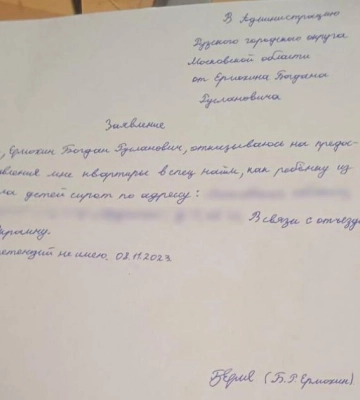 В Администрацию
Рузского городского округа
Московской области
от Ермохина Богдана
Руслановича
Заявление
, Ермохин Богдан Русланович, отказываюсь на предос-
вления мне квартиры в спец найм, как ребёнку из
ла детей сирот по адресу:
В связи с отъездо
краину.
ретензий не имею. 08.11.2023
(Б.Р. Ермохин)